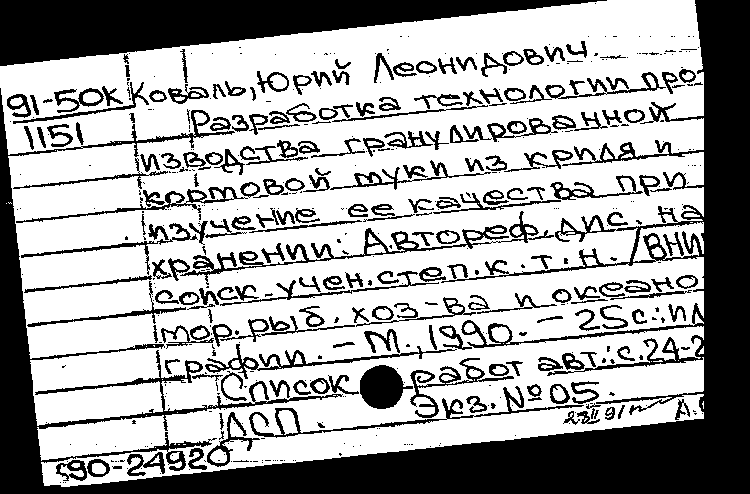 91-50К Коваль, Юрий Леонидович.
1151 Разработка технологии про-
изводства гранулированной
кормовой муки из криля и
изучение ее качества при
хранении: Автореф. дис. на
соиск. учен. степ. к.т.н. /ВНИ
мор. рыб. хоз-ва и океано-
графии. – М., 1990. – 25 с.: ил
Список работ авт.: с. 24-2
ДСП. Экз. № 05.
90-24920